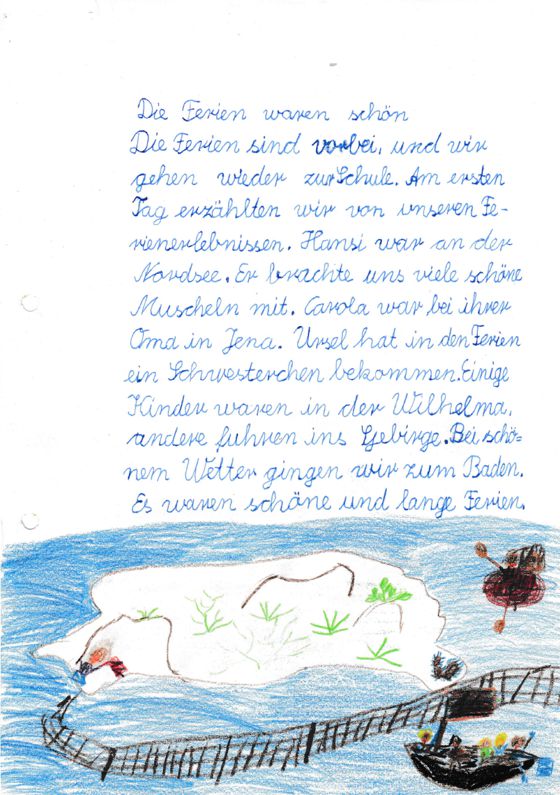 Die Ferien waren schön
Die Ferien sind vorbei, und wir
gehen wieder zur Schule. Am ersten
Tag erzählten wir von unseren Fe-
rienerlebnissen. Hansi war an der
Nordsee. Er brachte uns viele schöne
Muscheln mit. Carola war bei ihrer
Oma in Jena. Ursel hat in den Ferien
ein Schwesterchen bekommen. Einige
Kinder waren in der Wilhelma,
andere fuhren ins Gebirge. Bei schö-
nem Wetter gingen wir zum Baden.
Es waren schöne und lange Ferien.